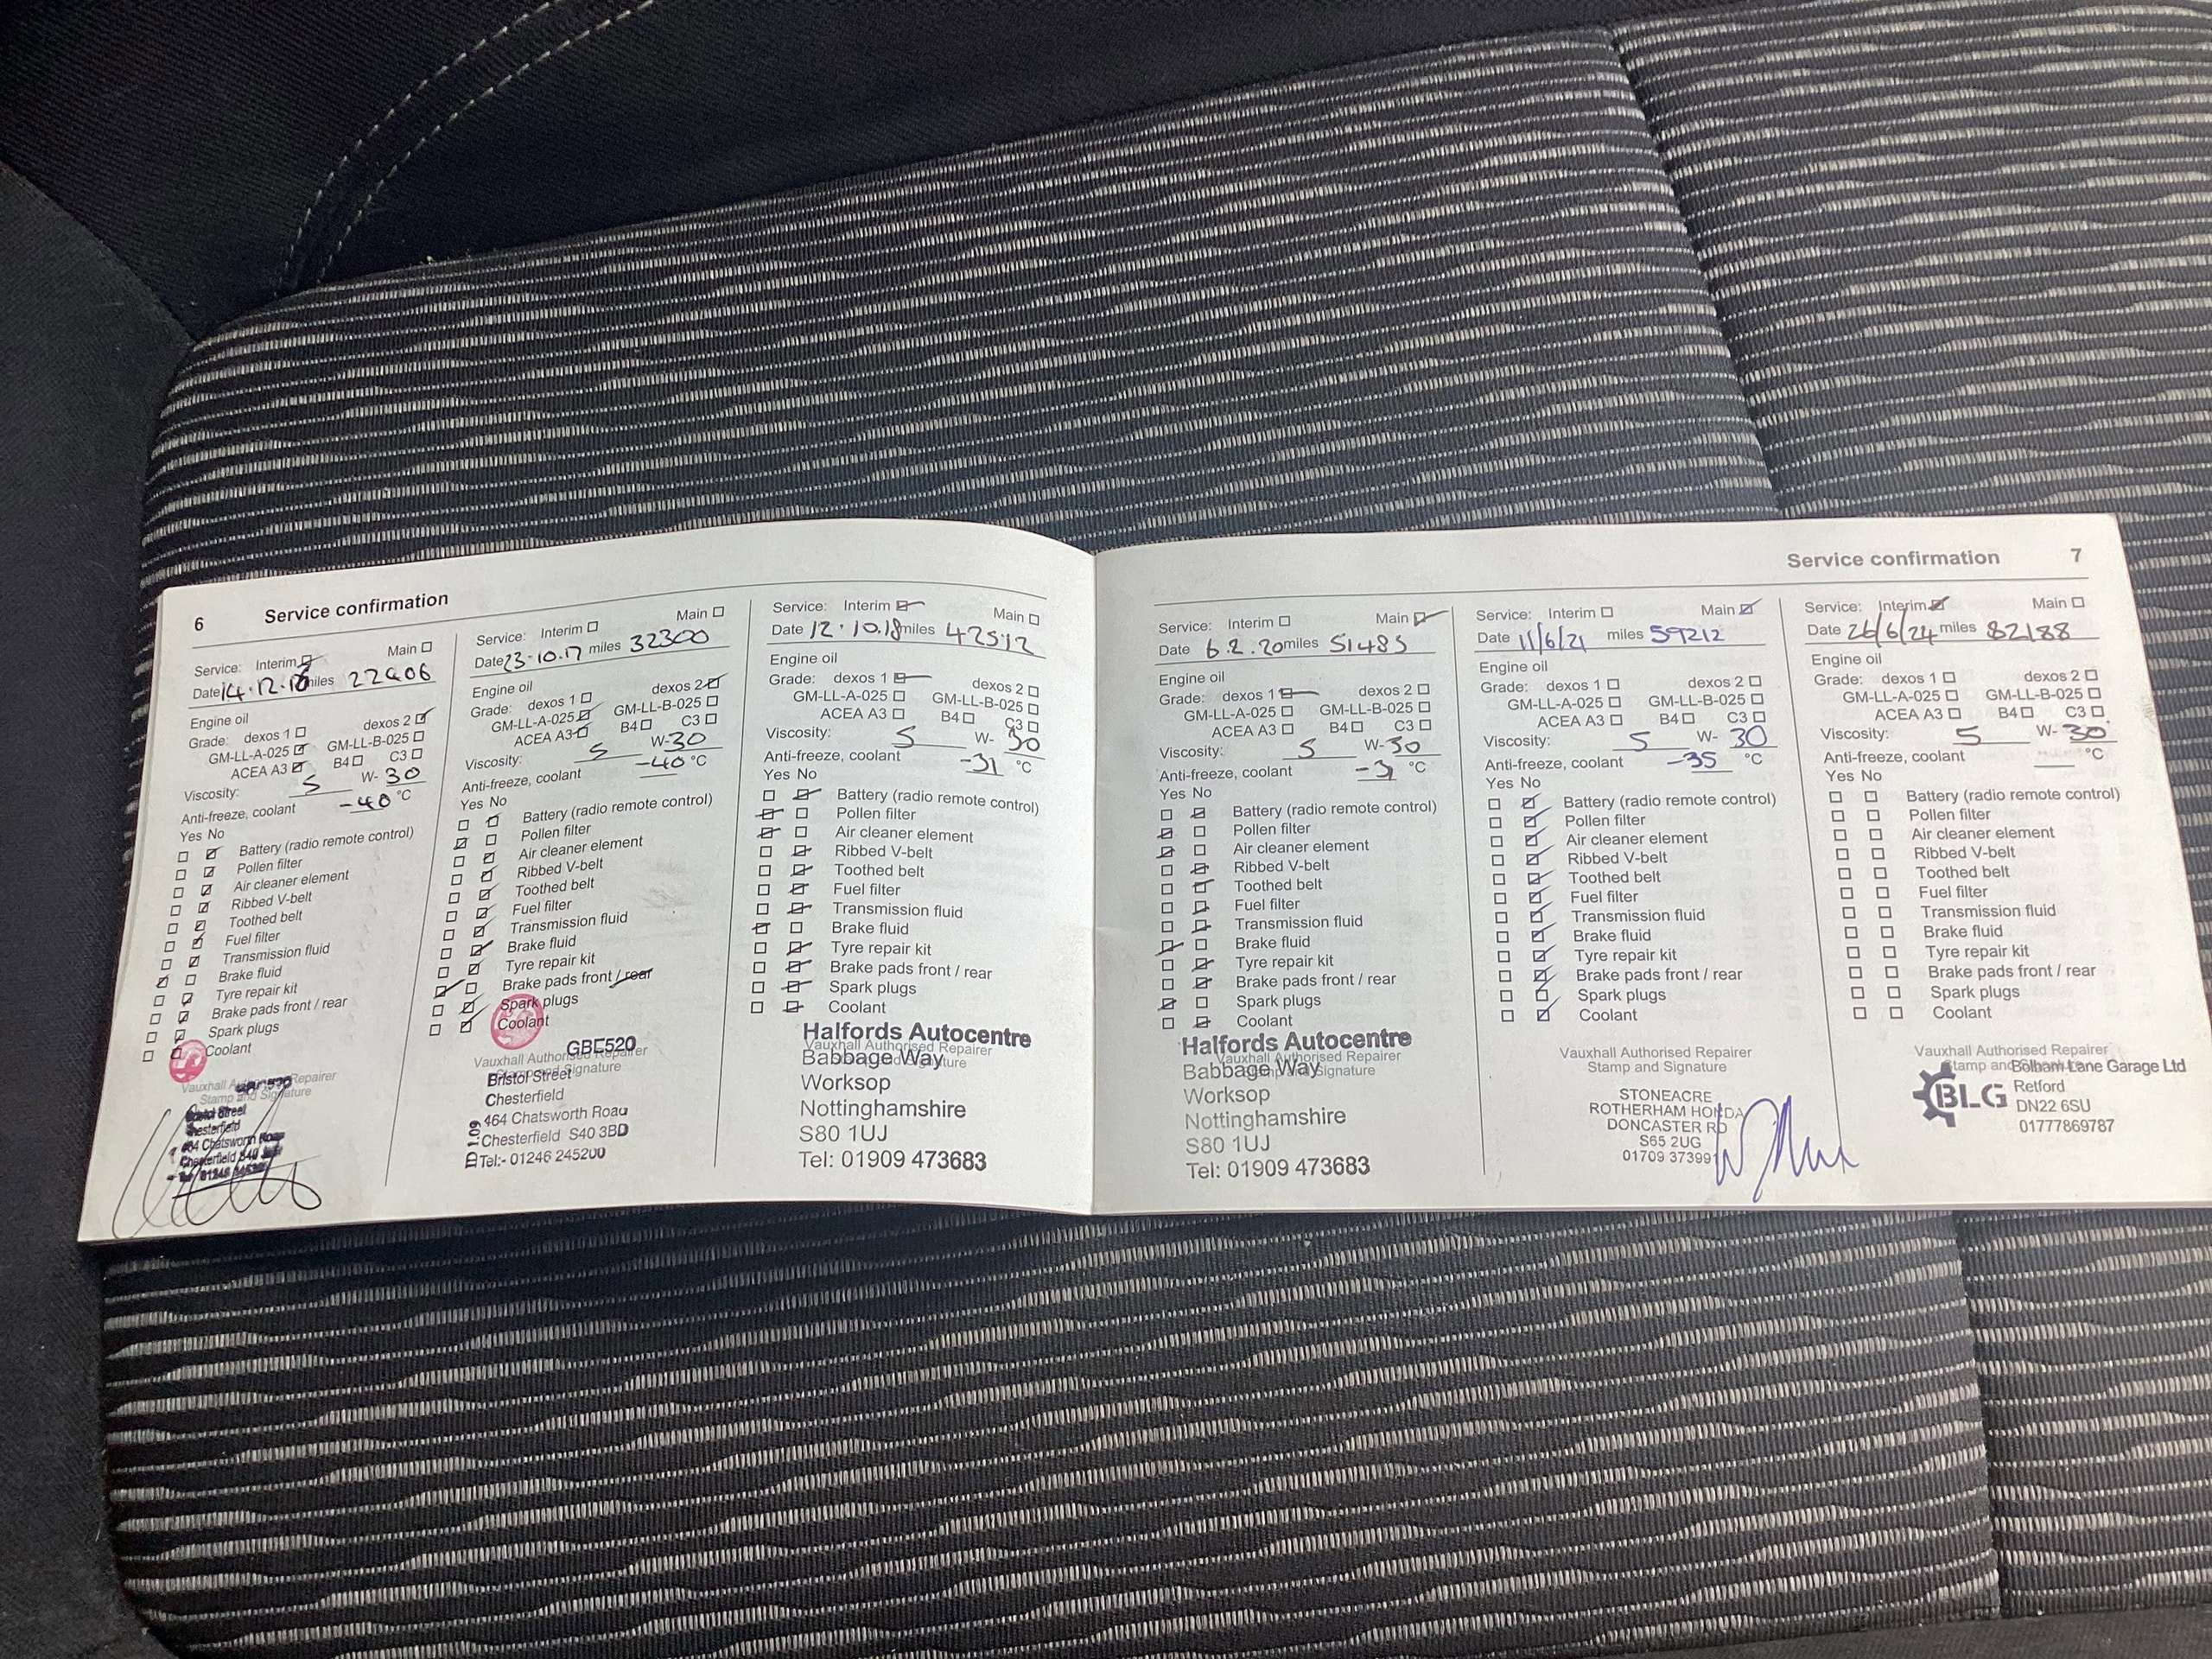 6 Service confirmation
Service: Interim Main
Date 14.12.16 miles 22406
Engine oil
Grade: dexos 1 dexos 2
GM-LL-A-025 GM-LL-B-025
ACEA A3 B4 C3
Viscosity: 5 W- 30
Anti-freeze, coolant -40 °C
Yes No
Battery (radio remote control)
Pollen filter
Air cleaner element
Ribbed V-belt
Toothed belt
Fuel filter
Transmission fluid
Brake fluid
Tyre repair kit
Brake pads front / rear
Spark plugs
Coolant
Vauxhall Authorised Repairer
Stamp and Signature
Bristol Street
Chesterfield
464 Chatsworth Road
Chesterfield S40
Service: Interim Main
Date 23-10.17 miles 32300
Engine oil
Grade: dexos 1 dexos 2
GM-LL-A-025 GM-LL-B-025
ACEA A3 B4 C3
Viscosity: 5 W-30
Anti-freeze, coolant -40 °C
Yes No
Battery (radio remote control)
Pollen filter
Air cleaner element
Ribbed V-belt
Toothed belt
Fuel filter
Transmission fluid
Brake fluid
Tyre repair kit
Brake pads front / rear
Spark plugs
Coolant
GBE520
Vauxhall Authorised Repairer
Stamp and Signature
Bristol Street
Chesterfield
464 Chatsworth Road
Chesterfield S40 3BD
Tel:- 01246 245200
Service: Interim Main
Date 12.10.18 miles 42512
Engine oil
Grade: dexos 1 dexos 2
GM-LL-A-025 GM-LL-B-025
ACEA A3 B4 C3
Viscosity: 5 W- 30
Anti-freeze, coolant -31 °C
Yes No
Battery (radio remote control)
Pollen filter
Air cleaner element
Ribbed V-belt
Toothed belt
Fuel filter
Transmission fluid
Brake fluid
Tyre repair kit
Brake pads front / rear
Spark plugs
Coolant
Halfords Autocentre
Vauxhall Authorised Repairer
Babbage Way
Worksop
Nottinghamshire
S80 1UJ
Tel: 01909 473683
Service confirmation 7
Service: Interim Main
Date 6.2.20 miles 51485
Engine oil
Grade: dexos 1 dexos 2
GM-LL-A-025 GM-LL-B-025
ACEA A3 B4 C3
Viscosity: 5 W-30
Anti-freeze, coolant -31 °C
Yes No
Battery (radio remote control)
Pollen filter
Air cleaner element
Ribbed V-belt
Toothed belt
Fuel filter
Transmission fluid
Brake fluid
Tyre repair kit
Brake pads front / rear
Spark plugs
Coolant
Halfords Autocentre
Vauxhall Authorised Repairer
Babbage Way
Worksop
Nottinghamshire
S80 1UJ
Tel: 01909 473683
Service: Interim Main
Date 11/6/21 miles 59212
Engine oil
Grade: dexos 1 dexos 2
GM-LL-A-025 GM-LL-B-025
ACEA A3 B4 C3
Viscosity: 5 W- 30
Anti-freeze, coolant -35 °C
Yes No
Battery (radio remote control)
Pollen filter
Air cleaner element
Ribbed V-belt
Toothed belt
Fuel filter
Transmission fluid
Brake fluid
Tyre repair kit
Brake pads front / rear
Spark plugs
Coolant
Vauxhall Authorised Repairer
Stamp and Signature
STONEACRE
ROTHERHAM HONDA
DONCASTER RD
S65 2UG
01709 37399
Service: Interim Main
Date 26/6/24 miles 82188
Engine oil
Grade: dexos 1 dexos 2
GM-LL-A-025 GM-LL-B-025
ACEA A3 B4 C3
Viscosity: 5 W- 30
Anti-freeze, coolant °C
Yes No
Battery (radio remote control)
Pollen filter
Air cleaner element
Ribbed V-belt
Toothed belt
Fuel filter
Transmission fluid
Brake fluid
Tyre repair kit
Brake pads front / rear
Spark plugs
Coolant
Vauxhall Authorised Repairer
Bolham Lane Garage Ltd
BLG
Retford
DN22 6SU
01777869787